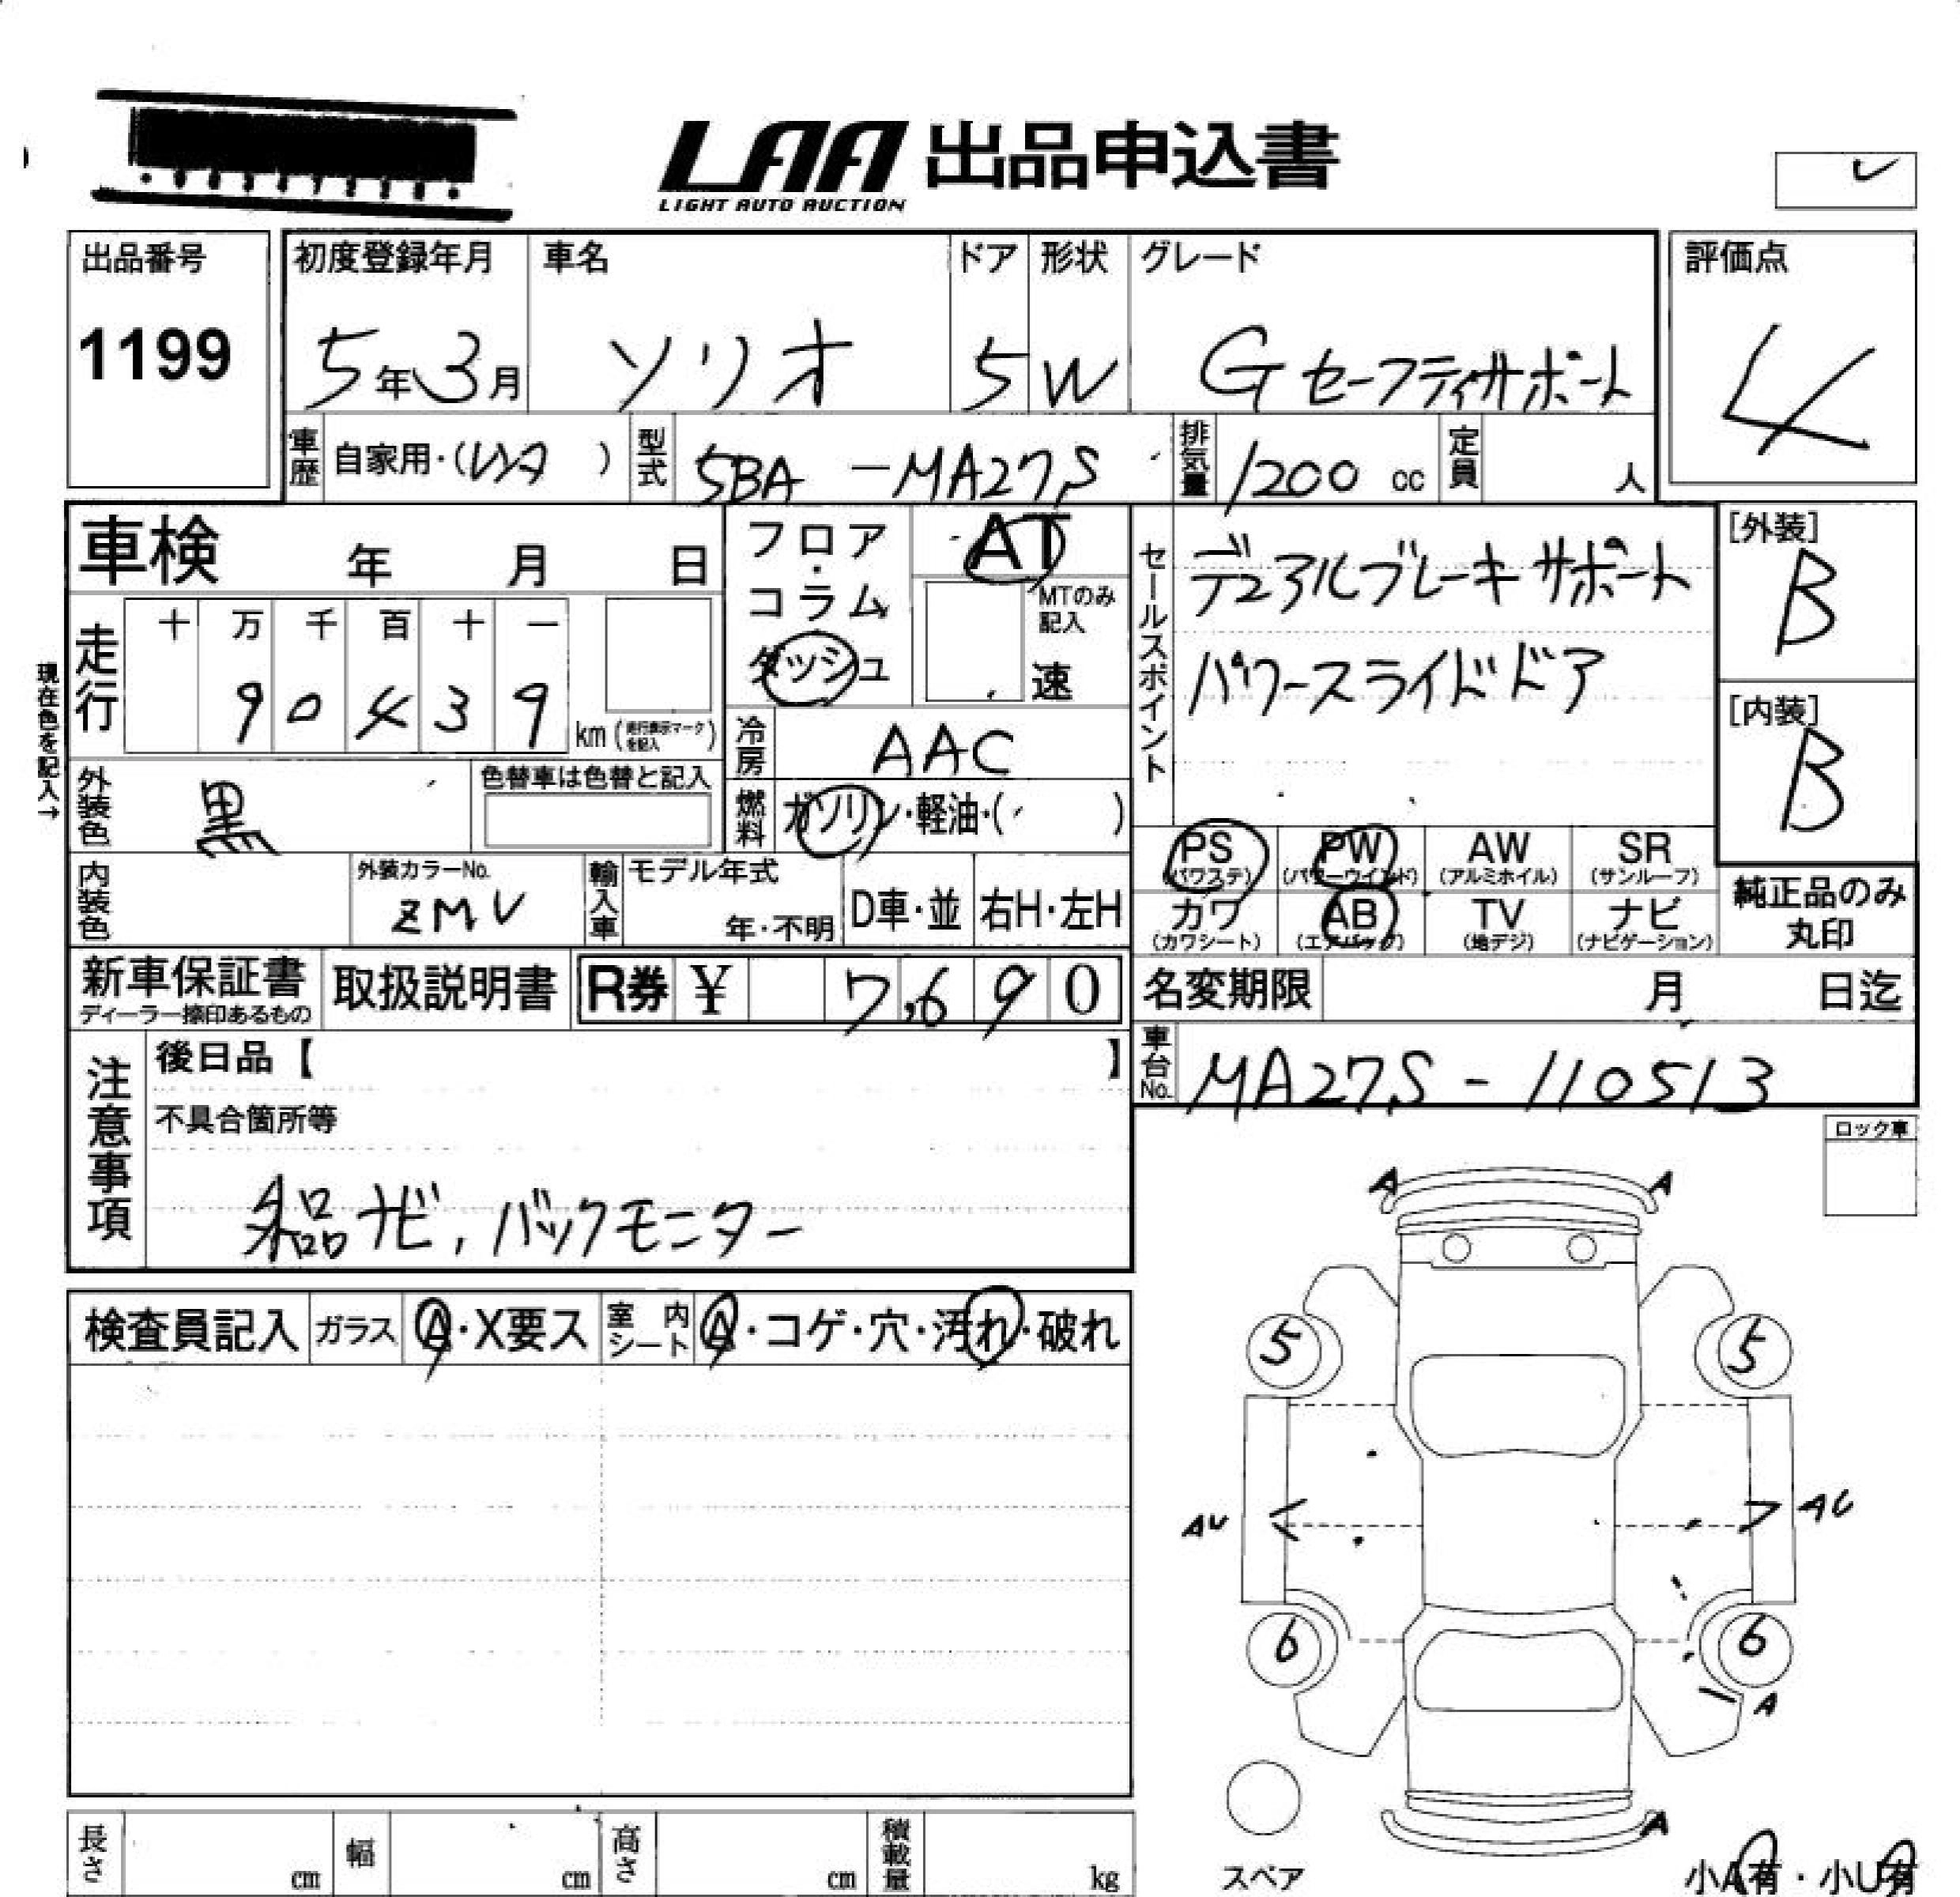 LAA 出品申込書
LIGHT AUTO AUCTION
出品番号
1199
初度登録年月
5年3月
車名
ソリオ
ドア
5
形状
W
グレード
Gセーフティサポート
評価点
4
車歴 自家用・(レンタ )
型式 5BA-MA27S
排気量 1200 cc
定員 人
車検 年 月 日
現在色を記入→
走行
十 万 千 百 十 一
9 0 4 3 9 km (走行表示マークを記入)
フロア・コラム
ダッシュ
AT
MTのみ記入
速
冷房 AAC
燃料 ガソリン・軽油・( )
セールスポイント
デュアルブレーキサポート
パワースライドドア
[外装]
B
[内装]
B
外装色 黒
色替車は色替と記入
内装色
外装カラーNo.
ZMV
輸入車
モデル年式
年・不明
D車・並
右H・左H
PS PW AW SR
(パワステ) (パワーウインド) (アルミホイル) (サンルーフ)
カワ AB TV ナビ
(カワシート) (エアバック) (地デジ) (ナビゲーション)
純正品のみ
丸印
新車保証書
ディーラー捺印あるもの
取扱説明書
R券 ¥ 7,690
名変期限 月 日迄
車台No. MA27S-110513
注意事項
後日品【 】
不具合箇所等
条品ナビ, バックモニター
ロック車
検査員記入 ガラス A・X要ス 室内シート A・コゲ・穴・汚れ・破れ
A A
5 5
AU AU
6 6
A
A
スペア
小A有・小U有
長さ cm 幅 cm 高さ cm 積載量 kg